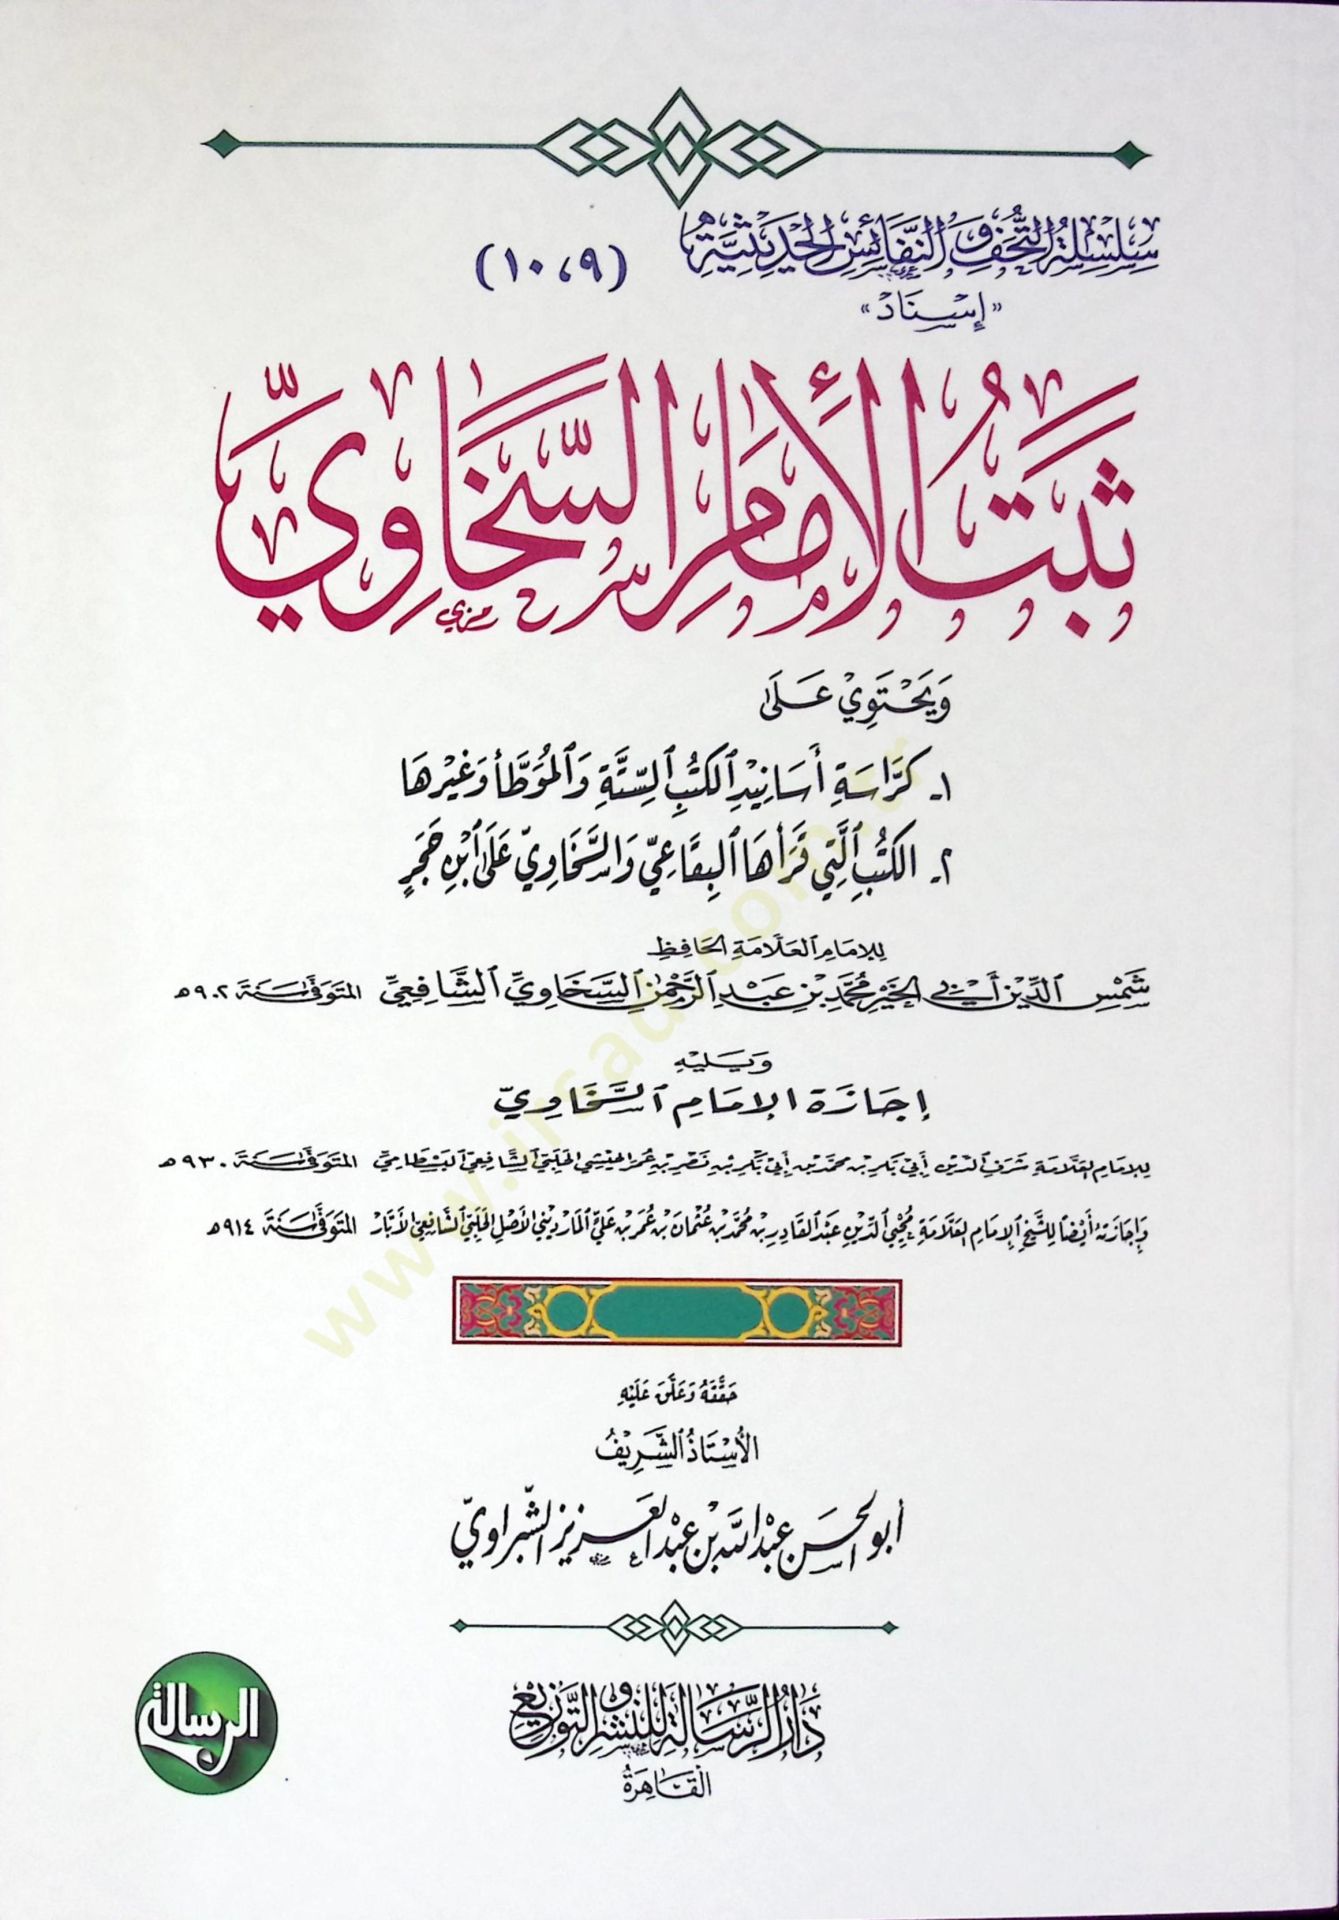 سِلْسِلَةُ التُّحَفِ وَالنَّفَائِسِ الْحَدِيثِيَّةِ (٩، ١٠)
«إِسْنَاد»
ثَبَتُ الْإِمَامِ السَّخَاوِيِّ
وَيَحْتَوِي عَلَى
١- كُرَّاسَةِ أَسَانِيدِ الْكُتُبِ السِّتَّةِ وَالْمُوَطَّأ وَغَيْرِهَا
٢- الْكُتُبِ الَّتِي قَرَأَهَا الْبِقَاعِيّ وَالسَّخَاوِيّ عَلَى ابْنِ حَجَرٍ
لِلْإِمَامِ الْعَلَّامَةِ الْحَافِظِ
شَمْسِ الدِّينِ أَبِي الْخَيْرِ مُحَمَّدِ بْنِ عَبْدِ الرَّحْمٰنِ السَّخَاوِيِّ الشَّافِعِيِّ المتَوَفَّى سَنَة ٩٠٢هـ
وَيَلِيهِ
إِجَازَة الْإِمَامِ السَّخَاوِيّ
لِلْإِمَامِ الْعَلَّامَةِ شَرَفِ الدِّين أَبِي بَكْرِ بْنِ مُحَمَّدِ بْنِ أَبِي بَكْرِ بْنِ نَصْرِ بْنِ عُمَرَ الْحِيشِي الْحَلَبِيّ الشَّافِعِيّ الْبَسْطَامِيّ المتَوَفَّى سَنَة ٩٣٠هـ
وَإِجَازَتهُ أَيْضًا لِلشَّيْخِ الْإِمَامِ الْعَلَّامَةِ مُحْيِي الدِّينِ عَبْدِ الْقَادِرِ بْنِ مُحَمَّدِ بْنِ عُثْمَانَ بْنِ عُمَرَ بْنِ عَلِيّ الْمَارِدِينِيّ الْأَصْلِ الْحَلَبِيّ الشَّافِعِيّ الْأَبَّار المتَوَفَّى سَنَة ٩١٤هـ
حَقَّقَهُ وَعَلَّقَ عَلَيْهِ
الْأُسْتَاذُ الشَّرِيفُ
أَبُو الْحَسَنِ عَبْدُ اللَّهِ بْنُ عَبْدِ الْعَزِيزِ الشَّبْرَاوِيّ
دَارُ الرِّسَالَةِ لِلنَّشْرِ وَالتَّوْزِيعِ
الْقَاهِرَةُ
الرسالة
www.irsad.com.tr